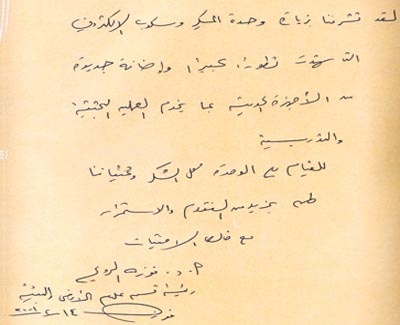 لقد تشرفنا بزيارة وحدة المسكر وسكوب الإلكتروني
التي شهدت تطوراً كبيراً وإضافة جديدة
من الأجهزة الحديثة بما يخدم العملية البحثية
والتدريسية
للقيام مع الوحدة كل الشكر وتمنياتنا
لهم بمزيد من التقدم والاستمرار
مع خالص الامنيات
أ.د. فوزية
رئيسة قسم علم البيئية
فوزية ١٤